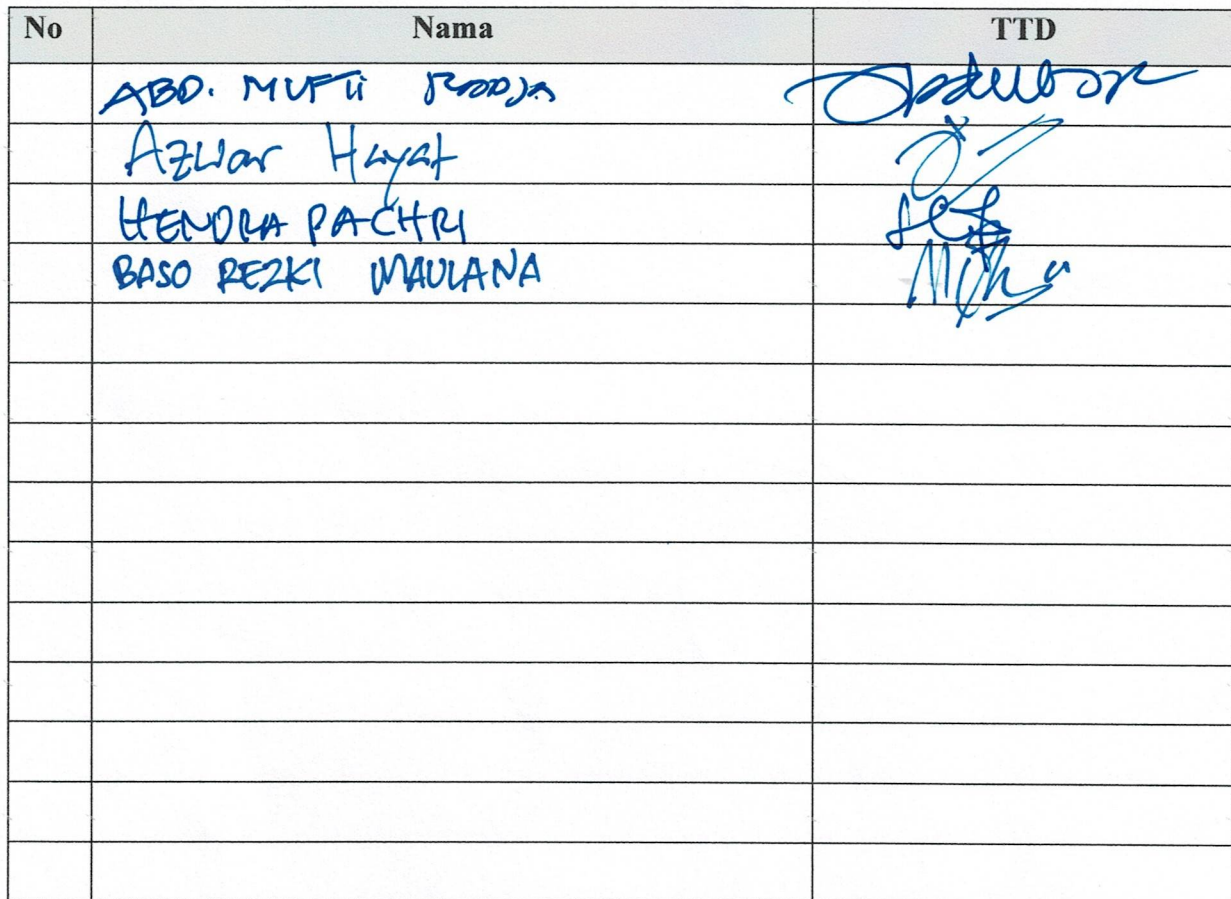 No Nama TTD
ABD. MUFTI
Azwar Hayat
HENDRA PACHRI
BASO REZKI MAULANA